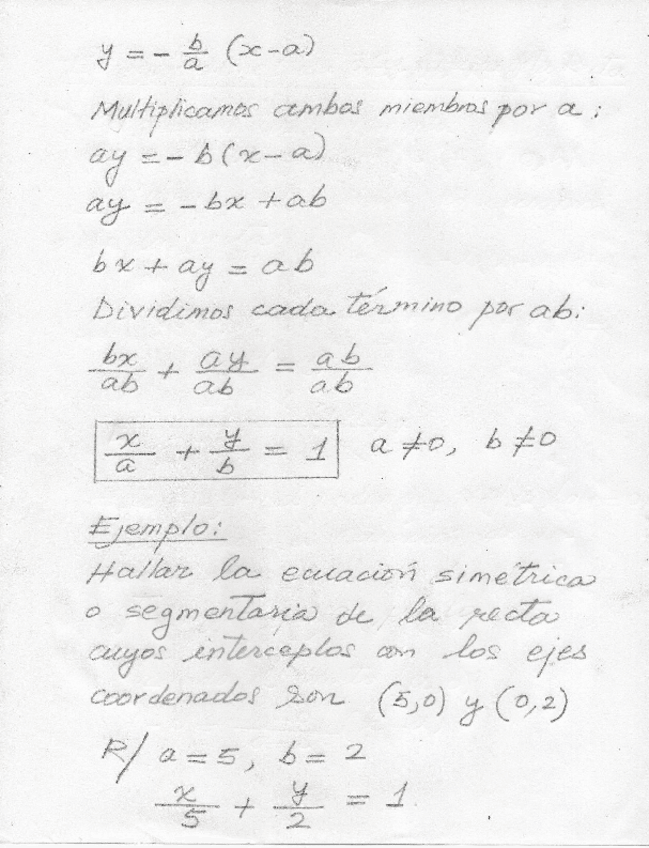 y = - b/a (x-a)
Multiplicamos ambos miembros por a:
ay = - b(x-a)
ay = - bx + ab
bx + ay = ab
Dividimos cada término por ab:
bx/ab + ay/ab = ab/ab
x/a + y/b = 1 a ≠ 0, b ≠ 0
Ejemplo:
Hallar la ecuación simétrica
o segmentaria de la recta
cuyos interceptos con los ejes
coordenados son (5,0) y (0,2)
R/ a = 5, b = 2
x/5 + y/2 = 1